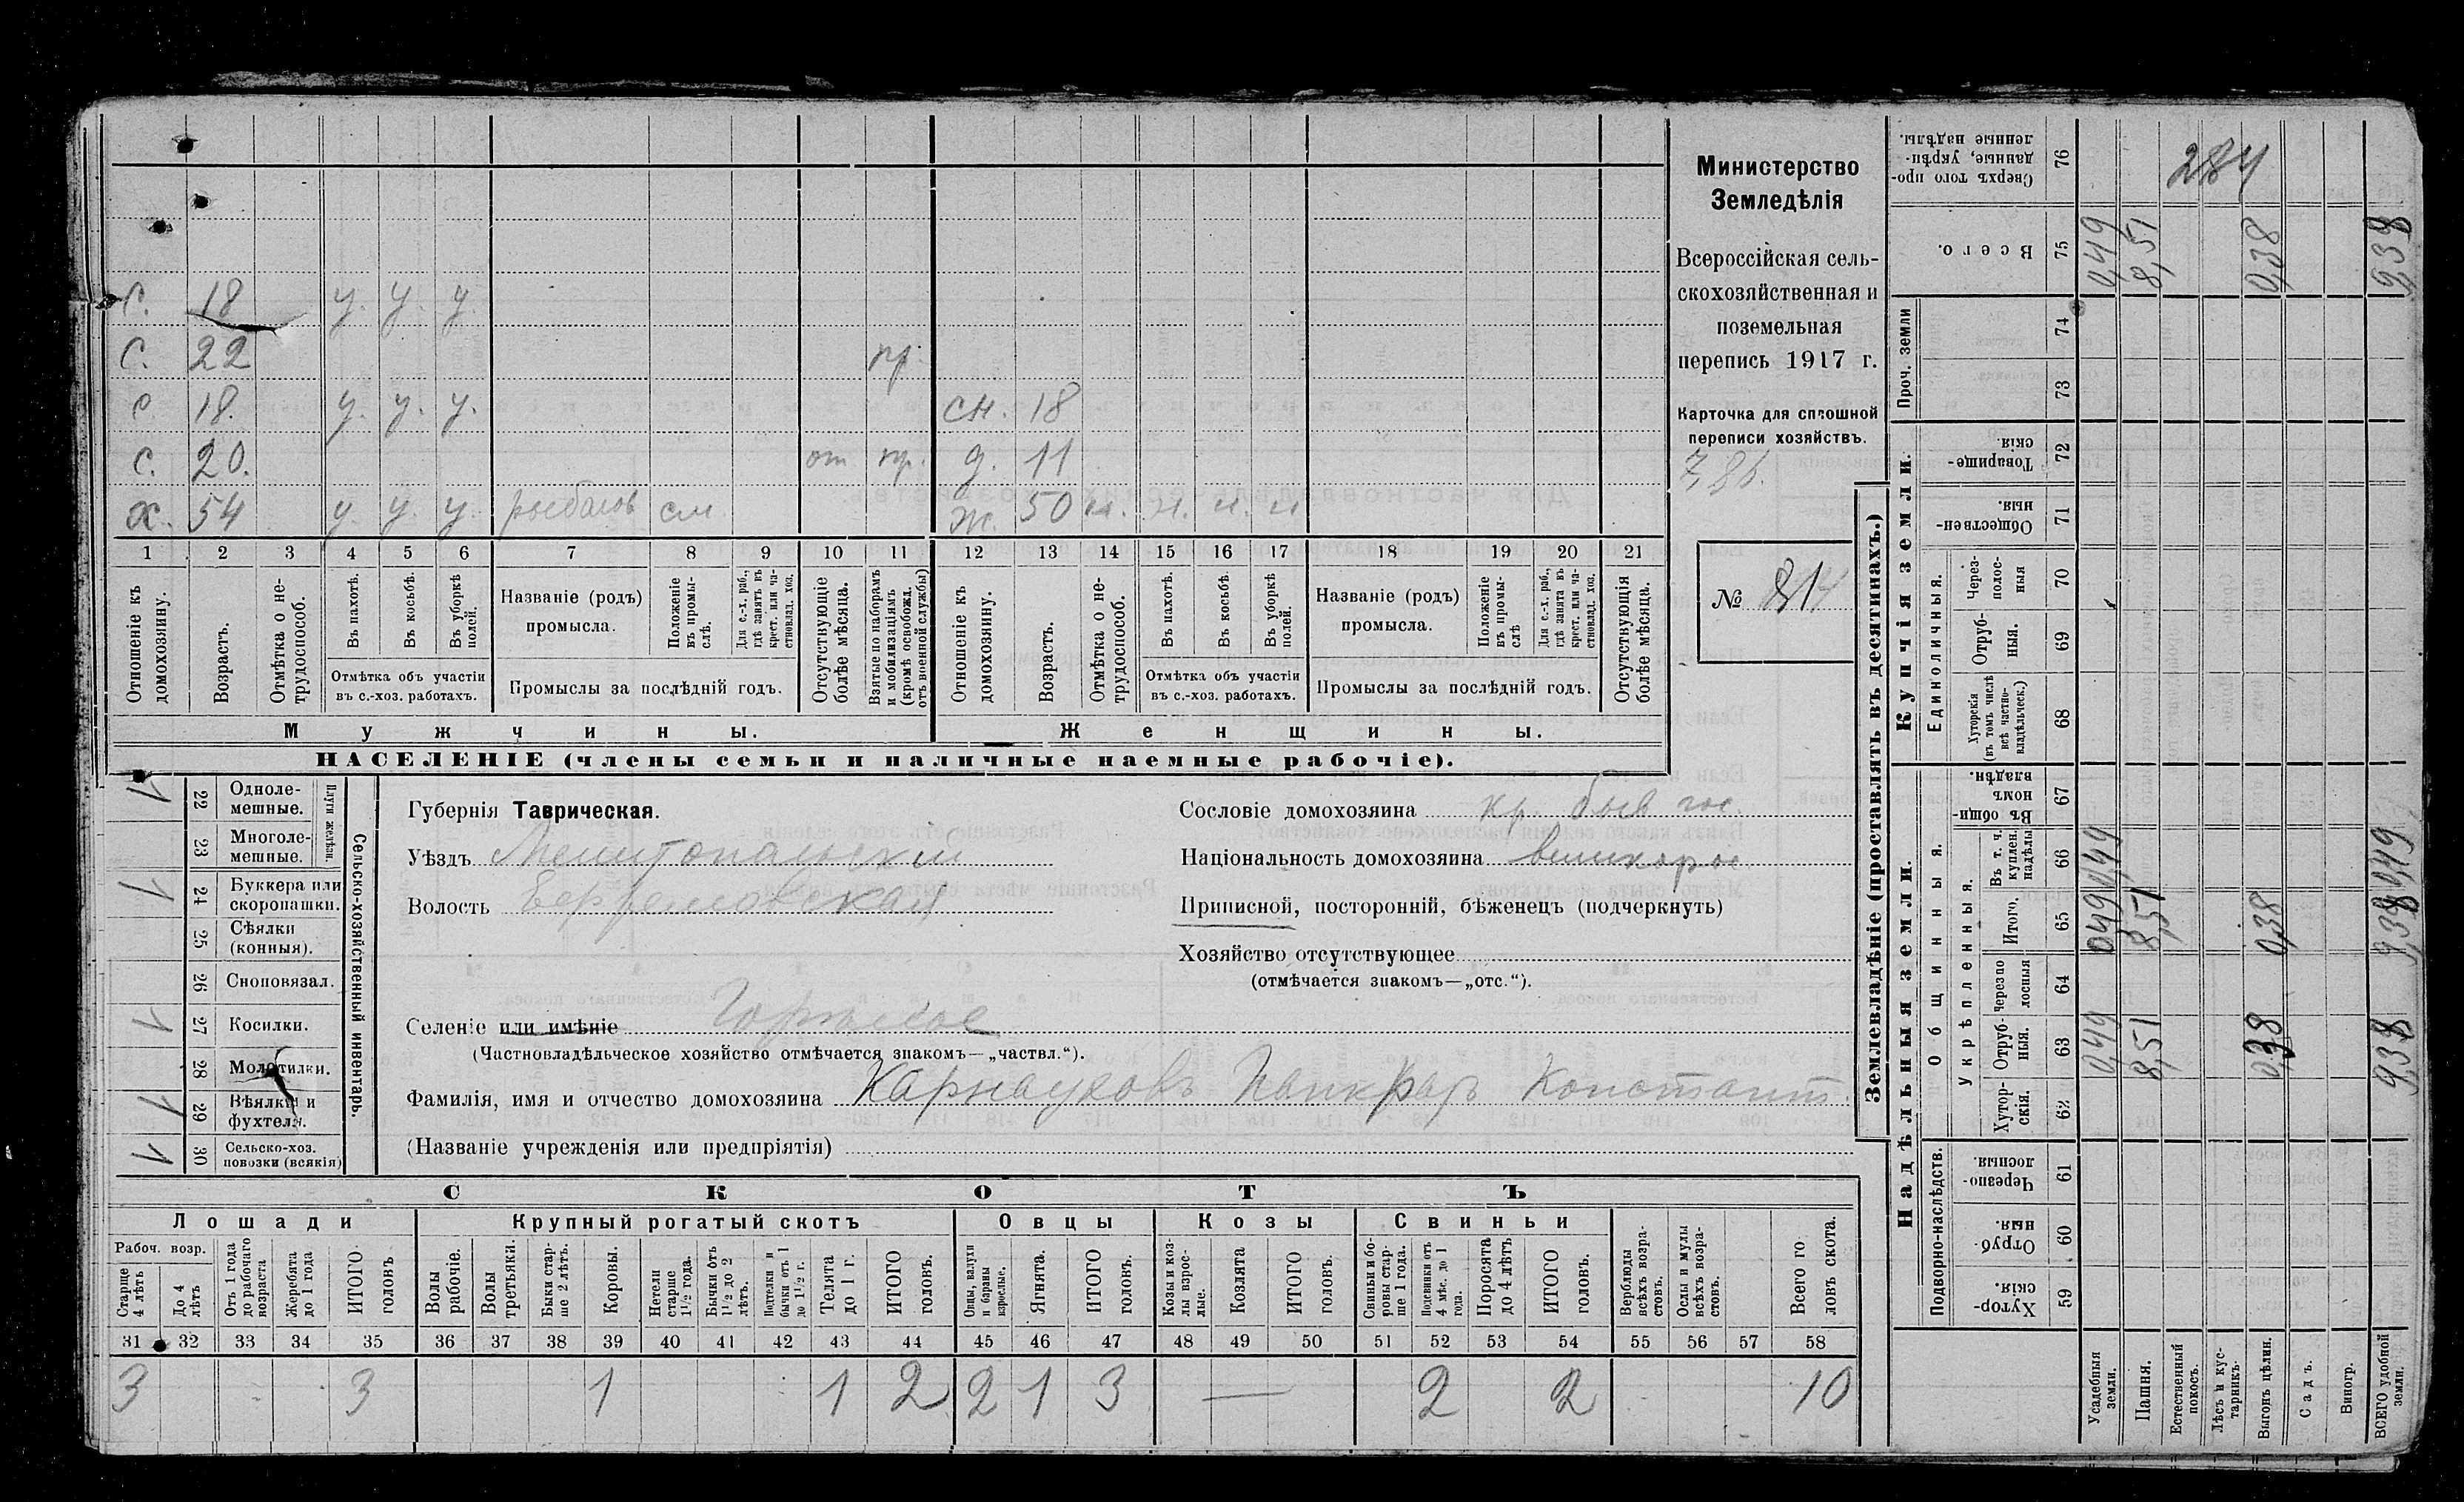 С. 18 у. у. у.
С. 22 пр.
с 18. у. у. у. сн. 18
с. 20. от пр. д. 11
х. 54 у. у. у. рыболов см ж. 50 н. н. н. н
1 2 3 4 5 6 7 8 9 10 11 12 13 14 15 16 17 18 19 20 21
Отношеніе къ домохозяину.
Возрастъ.
Отмѣтка о нетрудоспособ.
Въ пахотѣ.
Въ косьбѣ.
Въ уборкѣ полей.
Отмѣтка объ участіи
въ с.-хоз. работахъ.
Названіе (родъ)
промысла.
Положеніе въ промыслѣ.
Для с.-х. раб., гдѣ занятъ въ крест. или частновлад. хоз.
Промыслы за послѣдній годъ.
Отсутствующіе болѣе мѣсяца.
Взятые по наборамъ и мобилизаціямъ (кромѣ освобожд. отъ военной службы)
Отношеніе къ домохозяину.
Возрастъ.
Отмѣтка о нетрудоспособ.
Въ пахотѣ.
Въ косьбѣ.
Въ уборкѣ полей.
Отмѣтка объ участіи
въ с.-хоз. работахъ.
Названіе (родъ)
промысла.
Положеніе въ промыслѣ
Для с.-х. раб., гдѣ занята въ крест. или частновлад. хоз.
Промыслы за послѣдній годъ.
Отсутствующія болѣе мѣсяца.
Мужчины. Женщины.
НАСЕЛЕНІЕ (члены семьи и наличные наемные рабочіе).
Министерство
Земледѣлія
Всероссійская сель-
скохозяйственная и
поземельная
перепись 1917 г.
Карточка для сплошной
переписи хозяйствъ.
№ 814
1 22 Одноле-
мешные.
Плуги желѣзн.
23 Многоле-
мешные.
1 24 Буккера или
скоропашки.
25 Сѣялки
(конныя).
26 Сноповязал.
1 27 Косилки.
28 Молотилки.
1 29 Вѣялки и
фухтели.
1 30 Сельско-хоз.
повозки (всякія)
Сельско-хозяйственный инвентарь.
Губернія Таврическая.
Уѣздъ Мелитопольскій
Волость Ефремовская
Селеніе или имѣніе Горькое
(Частновладѣльческое хозяйство отмѣчается знакомъ—„частвл.“).
Фамилія, имя и отчество домохозяина Карнауховъ Панкрат Констант.
(Названіе учрежденія или предпріятія)
Сословіе домохозяина кр. быв гос.
Національность домохозяина великорос
Приписной, посторонній, бѣженецъ (подчеркнуть)
Хозяйство отсутствующее
(отмѣчается знакомъ—„отс.“).
СКОТЪ
Лошади Крупный рогатый скотъ Овцы Козы Свиньи
Рабоч. возр.
Старше 4 лѣтъ
До 4 лѣтъ
Отъ 1 года до рабочаго возраста
Жеребята до 1 года
ИТОГО головъ
Волы рабочіе.
Волы третьяки.
Быки старше 2 лѣтъ.
Коровы.
Нетели старше 1½ года.
Бычки отъ 1½ до 2 лѣтъ.
Подтелки и бычки отъ 1 до 1½ г.
Телята до 1 г.
ИТОГО головъ.
Овцы, валухи и бараны взрослые.
Ягнята.
ИТОГО головъ.
Козы и козлы взрослые.
Козлята
ИТОГО головъ.
Свиньи и боровы старше 1 года.
Подсвинки отъ 4 мѣс. до 1 года.
Поросята до 4 лѣтъ
ИТОГО головъ.
Верблюды всѣхъ возрастовъ.
Ослы и мулы всѣхъ возрастовъ.
Всего головъ скота.
31 32 33 34 35 36 37 38 39 40 41 42 43 44 45 46 47 48 49 50 51 52 53 54 55 56 57 58
3 3 1 1 2 2 1 3 — 2 2 10
Землевладѣніе (проставлять въ десятинахъ.)
Надѣльныя земли. Купчія земли. Проч. земли
Подворно-наслѣдств. Общинныя. Укрѣпленныя. Единоличныя.
59 Хуторскія.
60 Отрубныя.
61 Черезполосныя.
62 Хуторскія.
63 Отрубныя. 0,49 8,51 0,38 9,38
64 Черезполосныя
65 Итого. 0,49 8,51 0,38 9,38
66 Въ т. ч. куплен. надѣлы 0,49 0,49
67 Въ общинномъ владѣн.
68 Хуторскія (въ томъ числѣ всѣ частновладѣльческ.)
69 Отрубныя.
70 Черезполосныя
71 Общественныя
72 Товарищескія.
73
74
75 Всего. 0,49 8,51 0,38 9,38
76 Сверхъ того проданные, укрѣпленные надѣлы. 284
Усадебныя земли.
Пашня.
Естественный покосъ.
Лѣсъ и кустарникъ.
Выгонъ цѣлин.
Садъ.
Виногр.
ВСЕГО удобной земли.